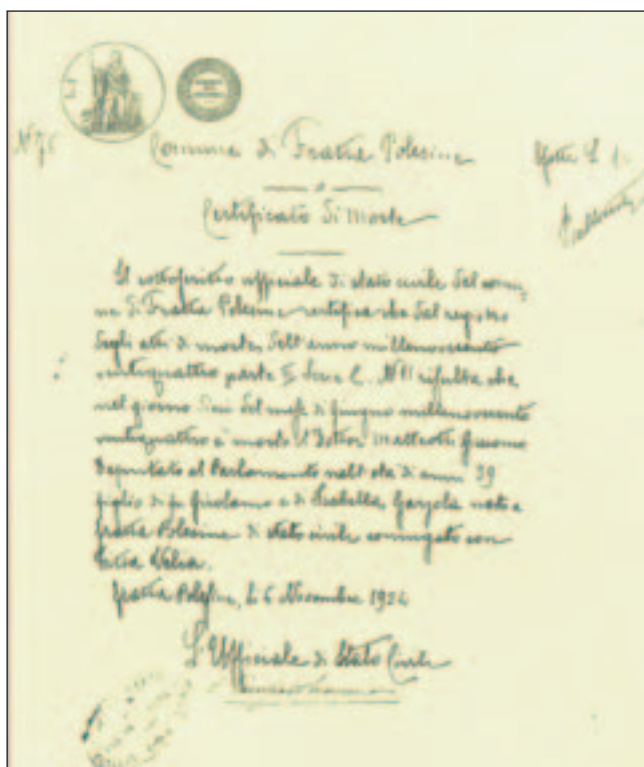 Comune di Fratta Polesine
Certificato di Morte
Il sottoscritto ufficiale di stato civile del comu-
ne di Fratta Polesine certifica che dal registro
degli atti di morte dell'anno millenovecento
ventiquattro parte II Serie C. N 11 risulta che
nel giorno dieci del mese di giugno millenovecento
ventiquattro è morto il Dottor Matteotti Giacomo
Deputato al Parlamento nell'età di anni 39
figlio di fu Girolamo e di Isabella Garzola nato a
Fratta Polesine di stato civile coniugato con
Velia.
Fratta Polesine, li 6 Novembre 1924
L'Ufficiale di Stato Civile